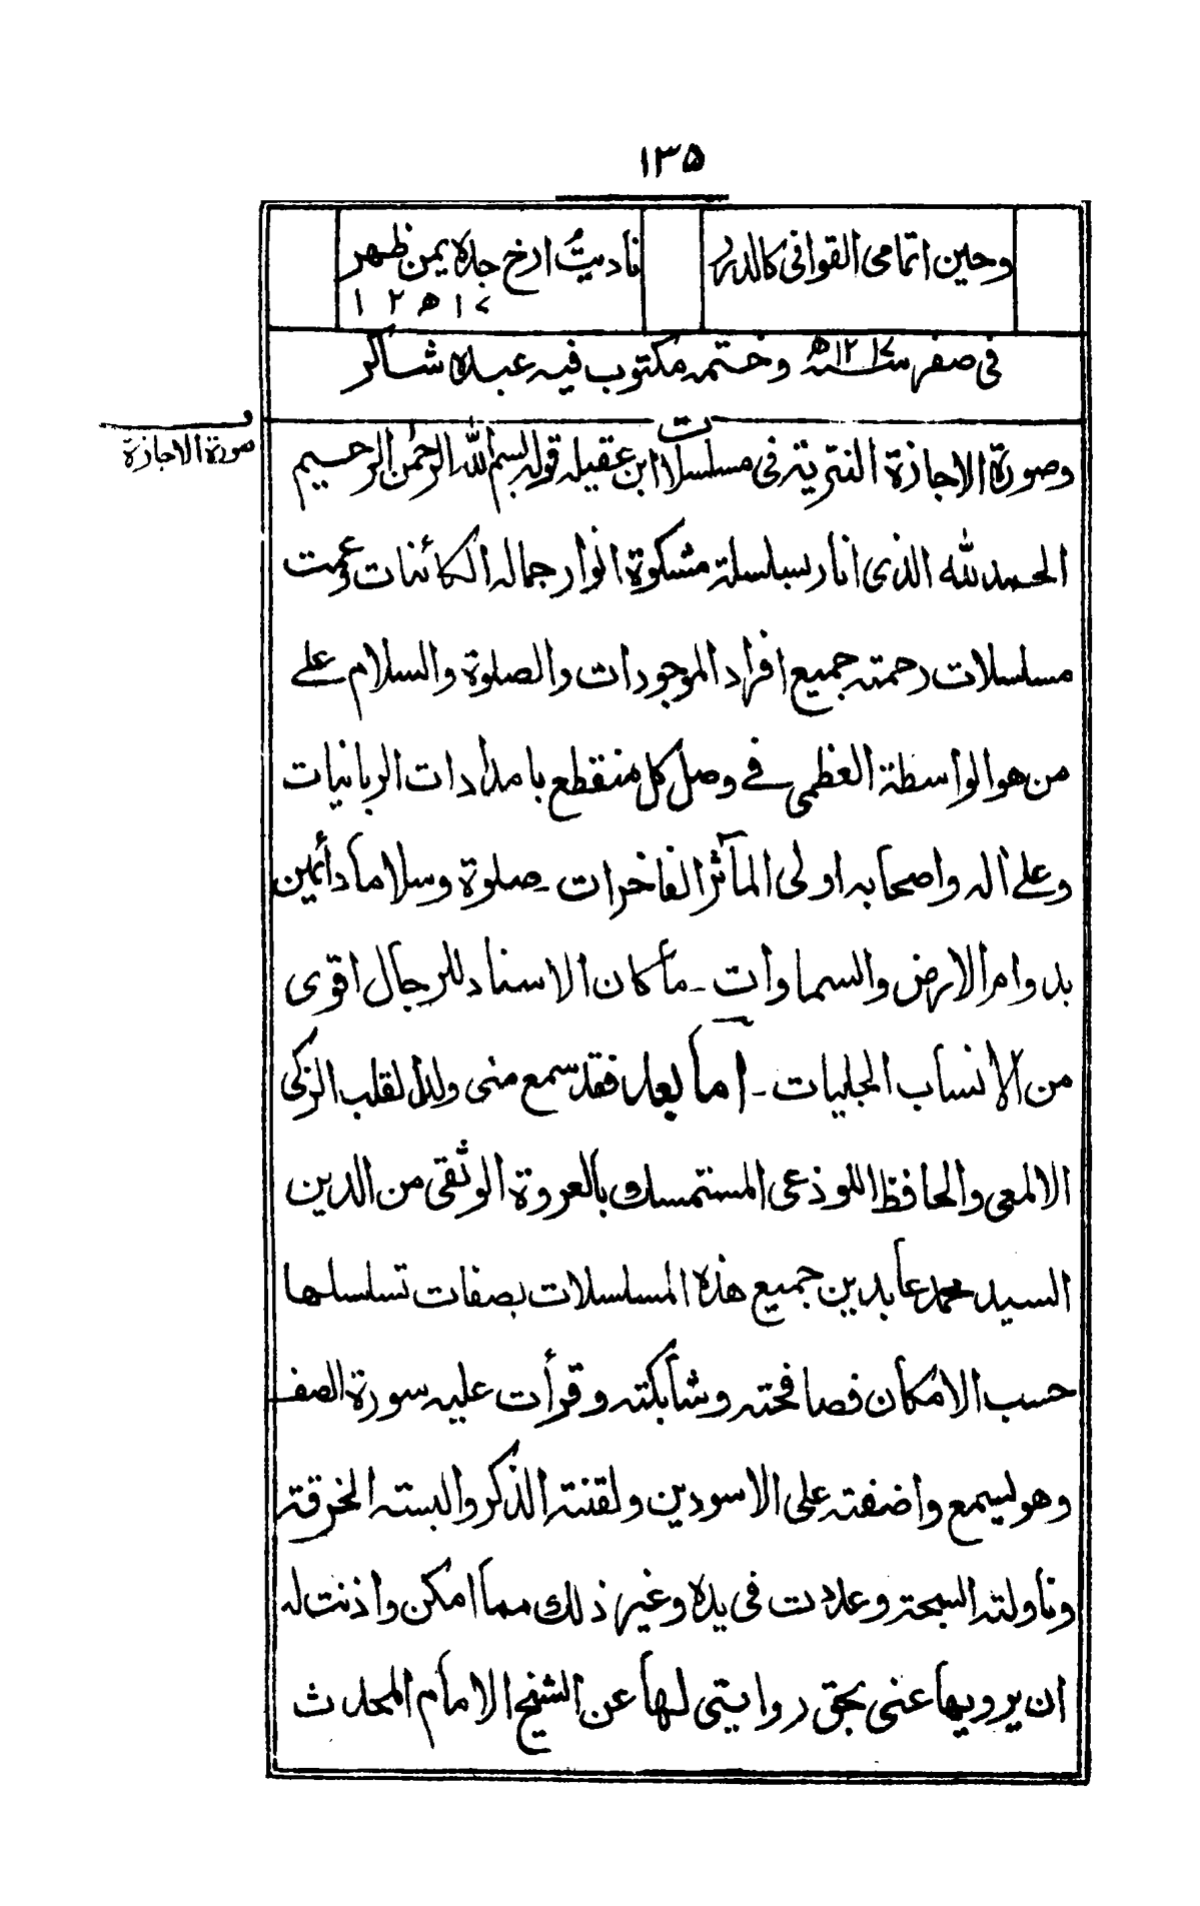 ١٣٥
وحين اتمامى القوافى كالدرر
ناديتُ ارخ جاده يمن ظهر
١٢١٧ه
فى صفر سنه ١٢١٧ه وختمه مكتوب فيه عبده شاكر
صورة الاجازة
وصورة الاجازة النثرية فى مسلسلات ابن عقيله قوله بسم الله الرحمٰن الرحيم
الحمد لله الذى انار بسلسلة مشكوة انوار جماله الكائنات وعمت
مسلسلات رحمته جميع افراد الموجودات والصلوة والسلام على
من هو الواسطة العظمى فى وصل كل منقطع بامدادات الربانيات
وعلى اله واصحابه اولى المآثر الفاخرات ـ صلوة وسلاما دائمين
بدوام الارض والسماوات ـ ما كان الاسناد للرجال اقوى
من الانساب الجليات ـ اما بعد فقد سمع منى ولدالقلب الزكى
الالمعى والحافظ اللوذعى المستمسك بالعروة الوثقى من الدين
السيد محمد عابدين جميع هذه المسلسلات بصفات تسلسلها
حسب الامكان فصافحته وشابكته وقرأت عليه سورة الصف
وهو يسمع واضفته على الاسودين ولقنته الذكر والبسته الخرقة
وناولته السبحة وعددت فى يده وغير ذلك مما امكن واذنت له
ان يرويها عنى بحق روايتى لها عن الشيخ الامام المحدث